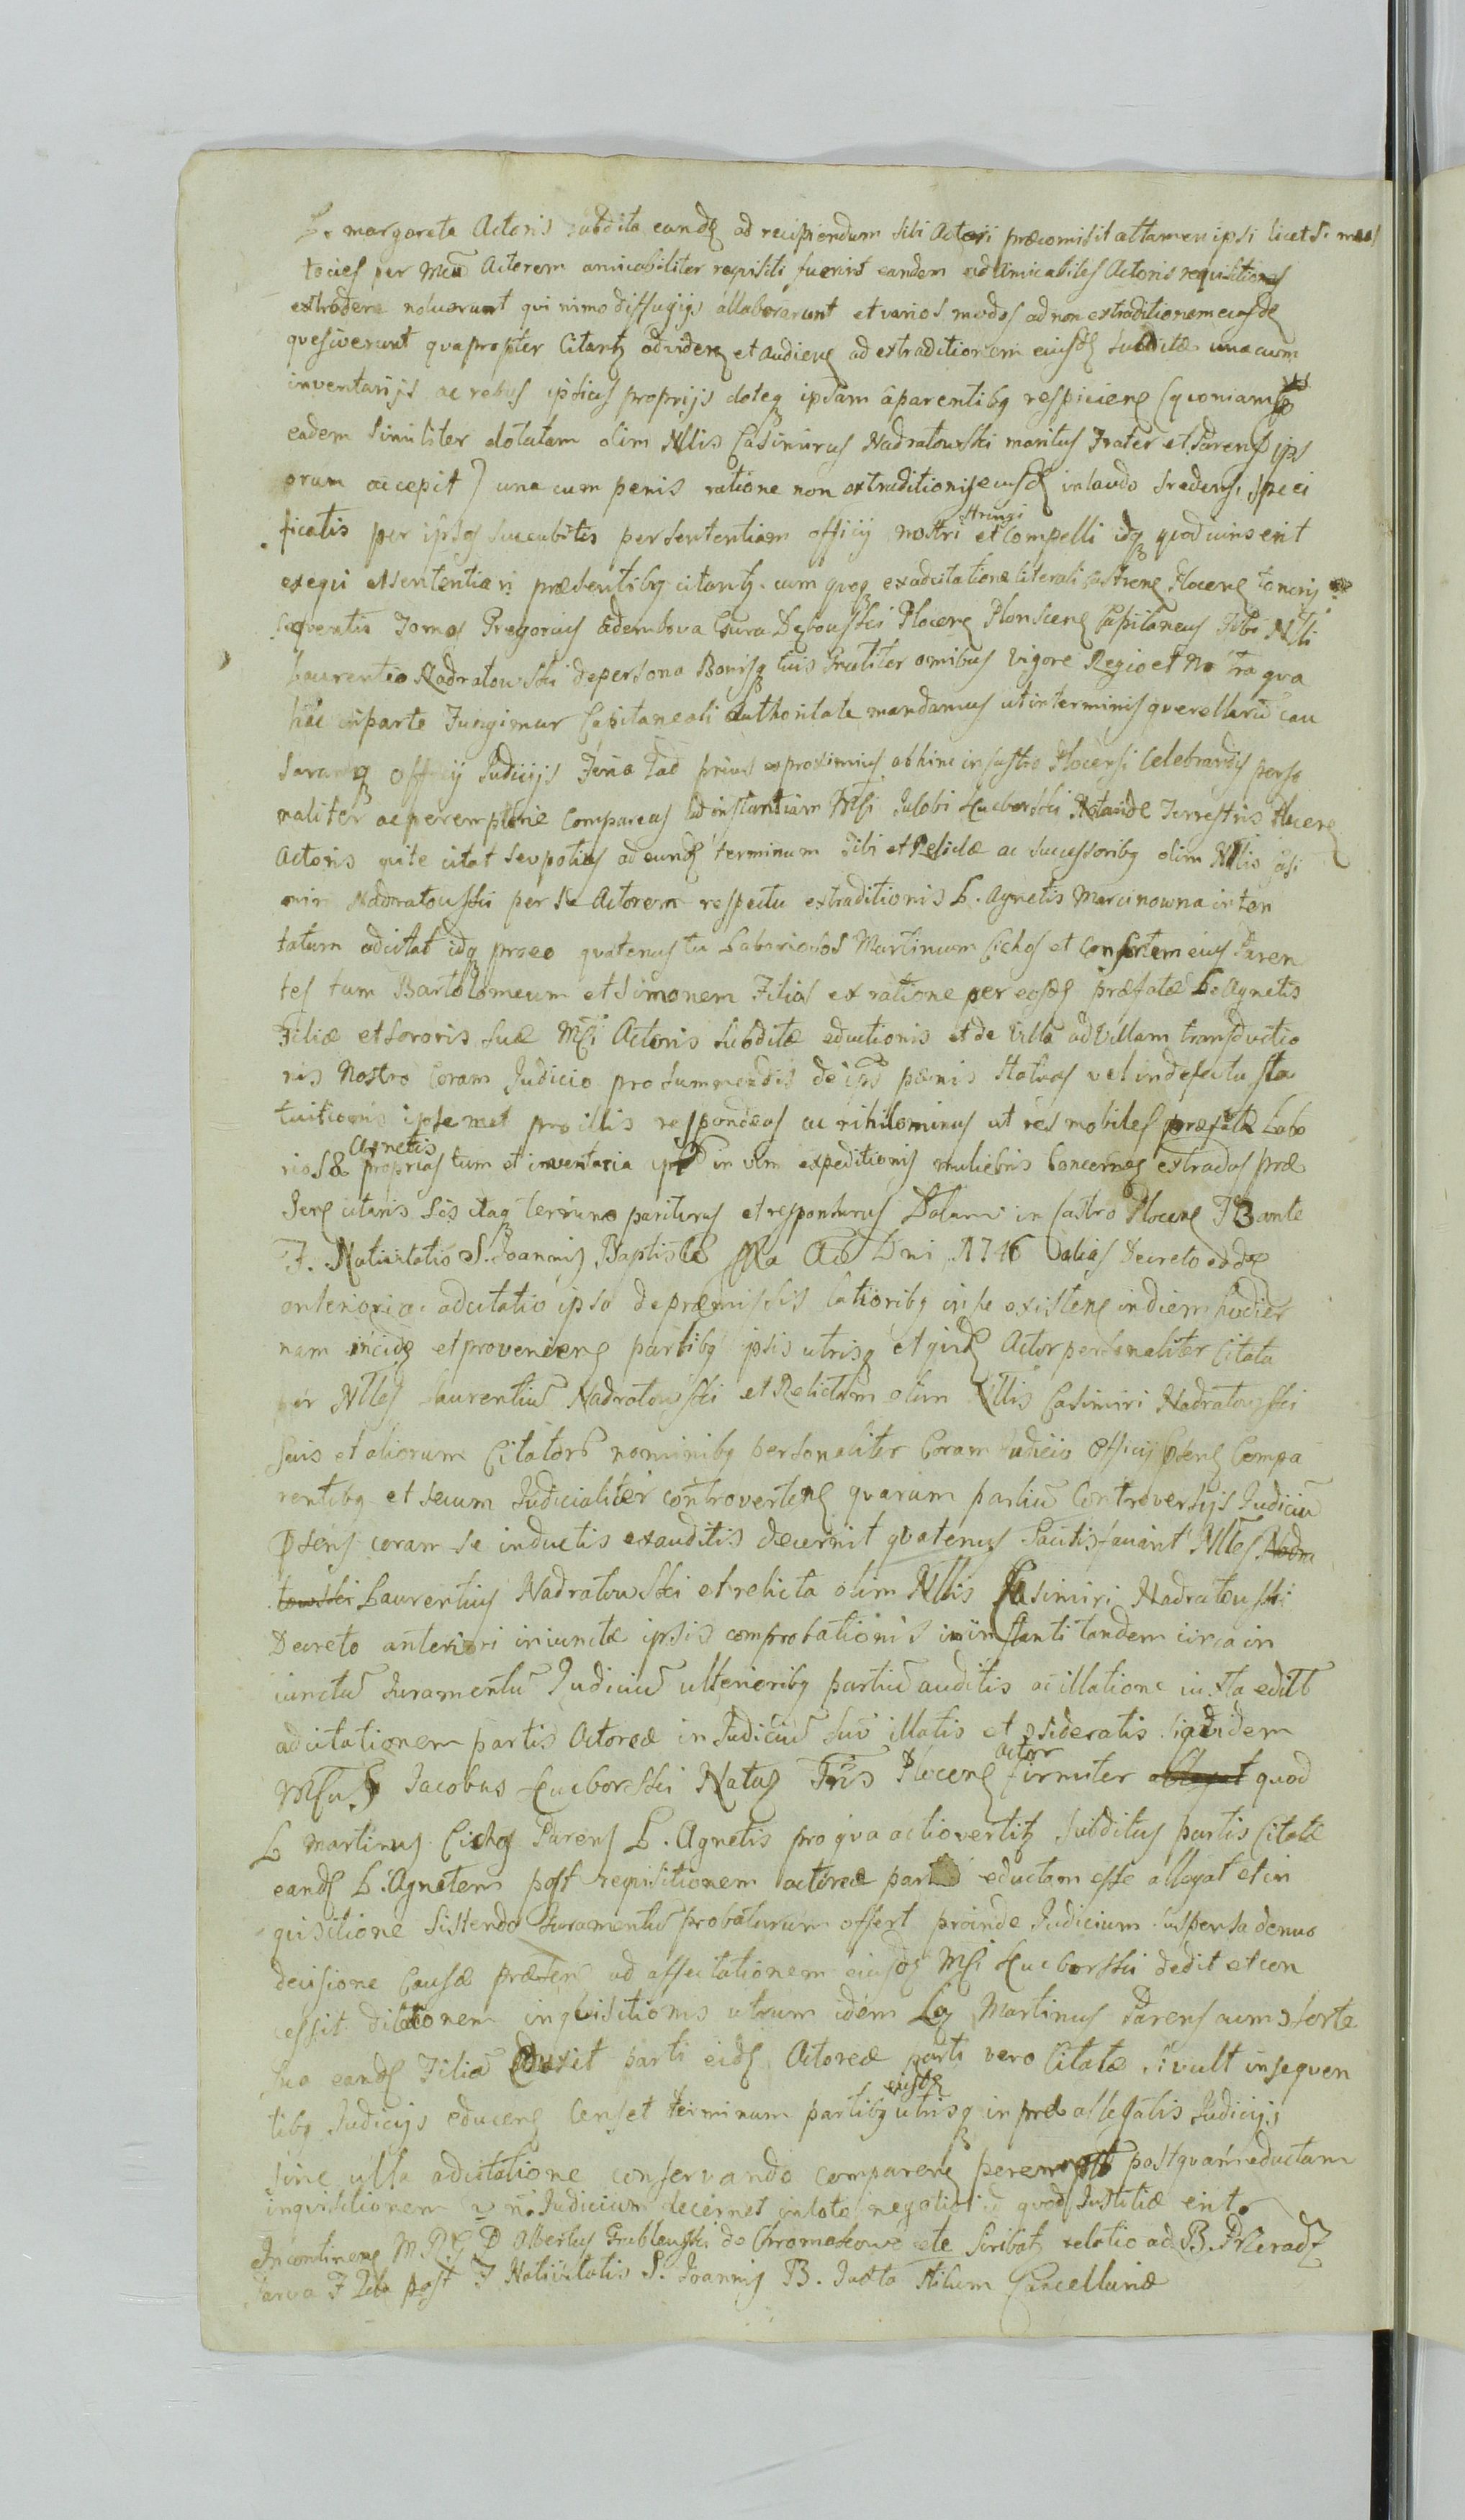 L. margareta Actoris subdita eandē ad recipiendum sibi Actori præcomisit attamen ipsi licet
toties per Mcū Actorem amicabiliter reqvisiti fuerint eandem ad amicabiles Actoris reqvisitiones
extradere noluerunt qvi nimo diffugijs allaborarunt et varios modos ad non extraditionem eiusdē
qvesiverunt qvapropter Citantꝫ ad videnꝫ et audienꝫ ad extraditionem eiusdē subditæ una cum
inventarijs ac rebus ipsius proprijs doteqꝫ ipsam a parentibꝫ respicienꝫ (qvoniam
eadem similiter dotatam olim Nllis Casimirus Nadratowski maritus Frater et Parens ips
orum accepit) una cum penis ratione non extraditionis eiusdē in laudo Sradensi speci
ficatis per ipsos succubitis per sententiam officij nostri stringi et compelli idqꝫ qvod iuris erit
exeqvi et sententiari præsentibꝫ citantꝫ. cum qvoqꝫ ex adcitatione literali Castrenꝫ Plocenꝫ tenoris
seqventis Tomas Gregorius a Dembowa Gura Dębowski Plocenꝫ Plonscenꝫ Capitaneus Tibi Nlli
Laurentio Nadratowski de persona Bonisqꝫ tuis Gnaliter omibus Vigore Regio et Nostra qva
hac in parte Fungimur Capitaneali Authoritate mandamus ut in terminis qverellarū cau
sarumqꝫ officij Judicijs Feria 2ad prius ex proximius abhinc in Castro Plocensi Celebrandis perso
naliter ac peremptorie Compareas ad instantiam Mfci Jakobi Łucborski Notarij Terrestris Plocenꝫ
Actoris qui te citat seu potius ad eundē terminum Tibi et Relictæ ac Successoribꝫ olim Nllis Casi
miri Nadratowski per se Actorem respectu extraditionis L. Agnetis Marcinowna inten
tatum adcitat idqꝫ pro eo qvatenus tu Laboriosos Martinum Cichos et Consortem eius Paren
tes tum Bartolomeum et Simonem Filios ex ratione per eosdē præfatæ L. Agnetis
Filiæ et Sororis suæ Mfci Actoris subditæ eductionis et de Villa ad Villam transductio
nis Nostro Coram Judicio pro summendis de ips pænis Statuas vel in defectu sta
tuitionis ipsemet pro illis respondeas ac nihilominus ut res mobiles præfatæ Labo
riosæ Agnetis proprias tum et inventaria in vim expeditionis muliebris Concernenꝫ extradas præ
senꝫ citaris Sis itaqꝫ termino pariturus et responsurus Datum in Castro Plocenꝫ F 3 ante
F. Nativitatis S. Joannis Baptistæ A D Dni 1746 alias Decreto eodē
anteriori ac adcitatio ipso de præmissis latioribꝫ in se existenꝫ in diem hodier
nam incidꝫ et provenienꝫ partibꝫ ipsis utrisqꝫ et qvidē Actor personaliter Citata
per Nlles Laurentiū Nadratowski et Relictam olim Nllis Casimiri Nadratowski
suis et aliorum Citatorū nominibꝫ personaliter Coram Judicio Officij Psenꝫ Compa
rentibꝫ et secum Judicialiter controvertenꝫ qvarum partiū Controversijs Judiciū
Psens coram se inductis exauditis decernit qvatenus Satisfaciant Nlles Nadra
towski Laurentius Nadratowski et relicta olim Nllis Casimiri Nadratowski
Decreto anteriori iniunctæ ipsis comprobationis in instanti tandem circa in
iunctū Juramentū Judiciū ulterioribꝫ partiū auditis ac illatione iuxta
adcitationem partis Actoreæ in Judiciū suo illatis et ɔsideratis siqvidem
Mfcus Jacobus Łucborski Notas Tris Plocenꝫ Actor firmiter allegat quod
L Martinus Cichos Parens L. Agnetis pro qva actio vertitꝫ Subditus partis Citatæ
eandē L. Agnetem post reqvisitionem actoreæ partis eductam esse allegat et in
quisitione sistendo Juramentū probaturum offert proinde Judicium suspensa denuo
decisione Causæ præsen ad affectationem eiusdē Mfci Łucborski dedit et con
cessit dilationem inqvisitionis utrum idem Lq Martinus Parens cum ɔsorte
sua eandē Filiā Eduxit parti eidē Actoreæ parti vero Citatæ si vult in seqven
tibꝫ Judicijs educenꝫ Censet terminum partibꝫ eisdē utrisqꝫ in præallegatis Judicijs
sine ulla adcitatione conservando comparenꝫ peremptor postqvam eductam
inqvisitionem Judicium decernet in tota negatio id quod Justitiæ erit.
Incontinenꝫ M. D. G D Albertus Grablewski de Chromakowo ete Scribatꝫ relatio ad B. Pzeradꝫ
Parva F 2da post F Nativitatis S. Joannis B. Juxta Stilum Cancellariæ